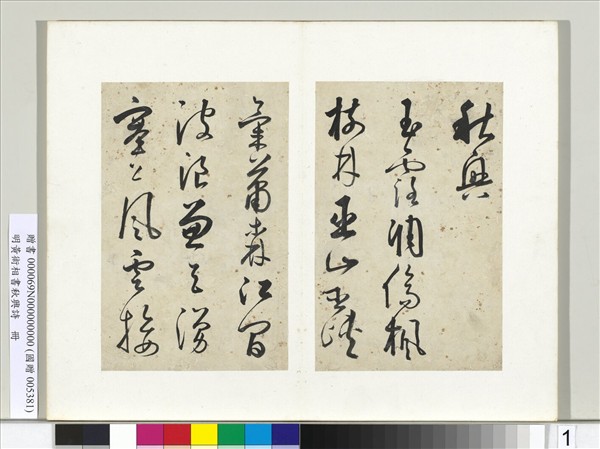 秋興
玉露凋傷楓
樹林巫山巫峽
氣蕭森江間
波浪兼天湧
塞上風雲接
贈書 000069N000000000 (國贈 005381)
明黃術相書秋興詩 冊
1